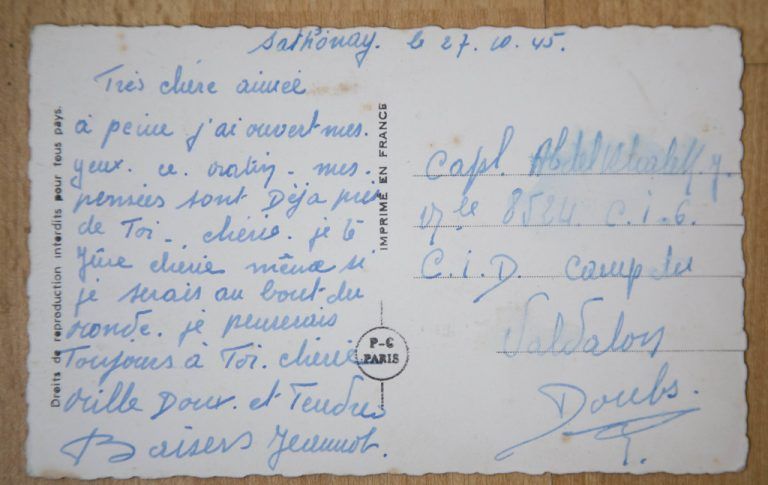 Sathonay. le 27.10.45.
Très chère aimée
à peine j'ai ouvert mes.
yeux. ce. matin. mes.
pensées sont Déjà près
de Toi. chérie. je te
jure chérie même si
je serais au bout du
monde. je penserais
Toujours à Toi. chérie
mille Doux. et Tendres
Baisers Jeannot.
Droits de reproduction interdits pour tous pays.
IMPRIMÉ EN FRANCE
P-C
PARIS
Capl.
Mle 8524. C.I.6.
C.I.D. Camp du
Valdahon
Doubs.